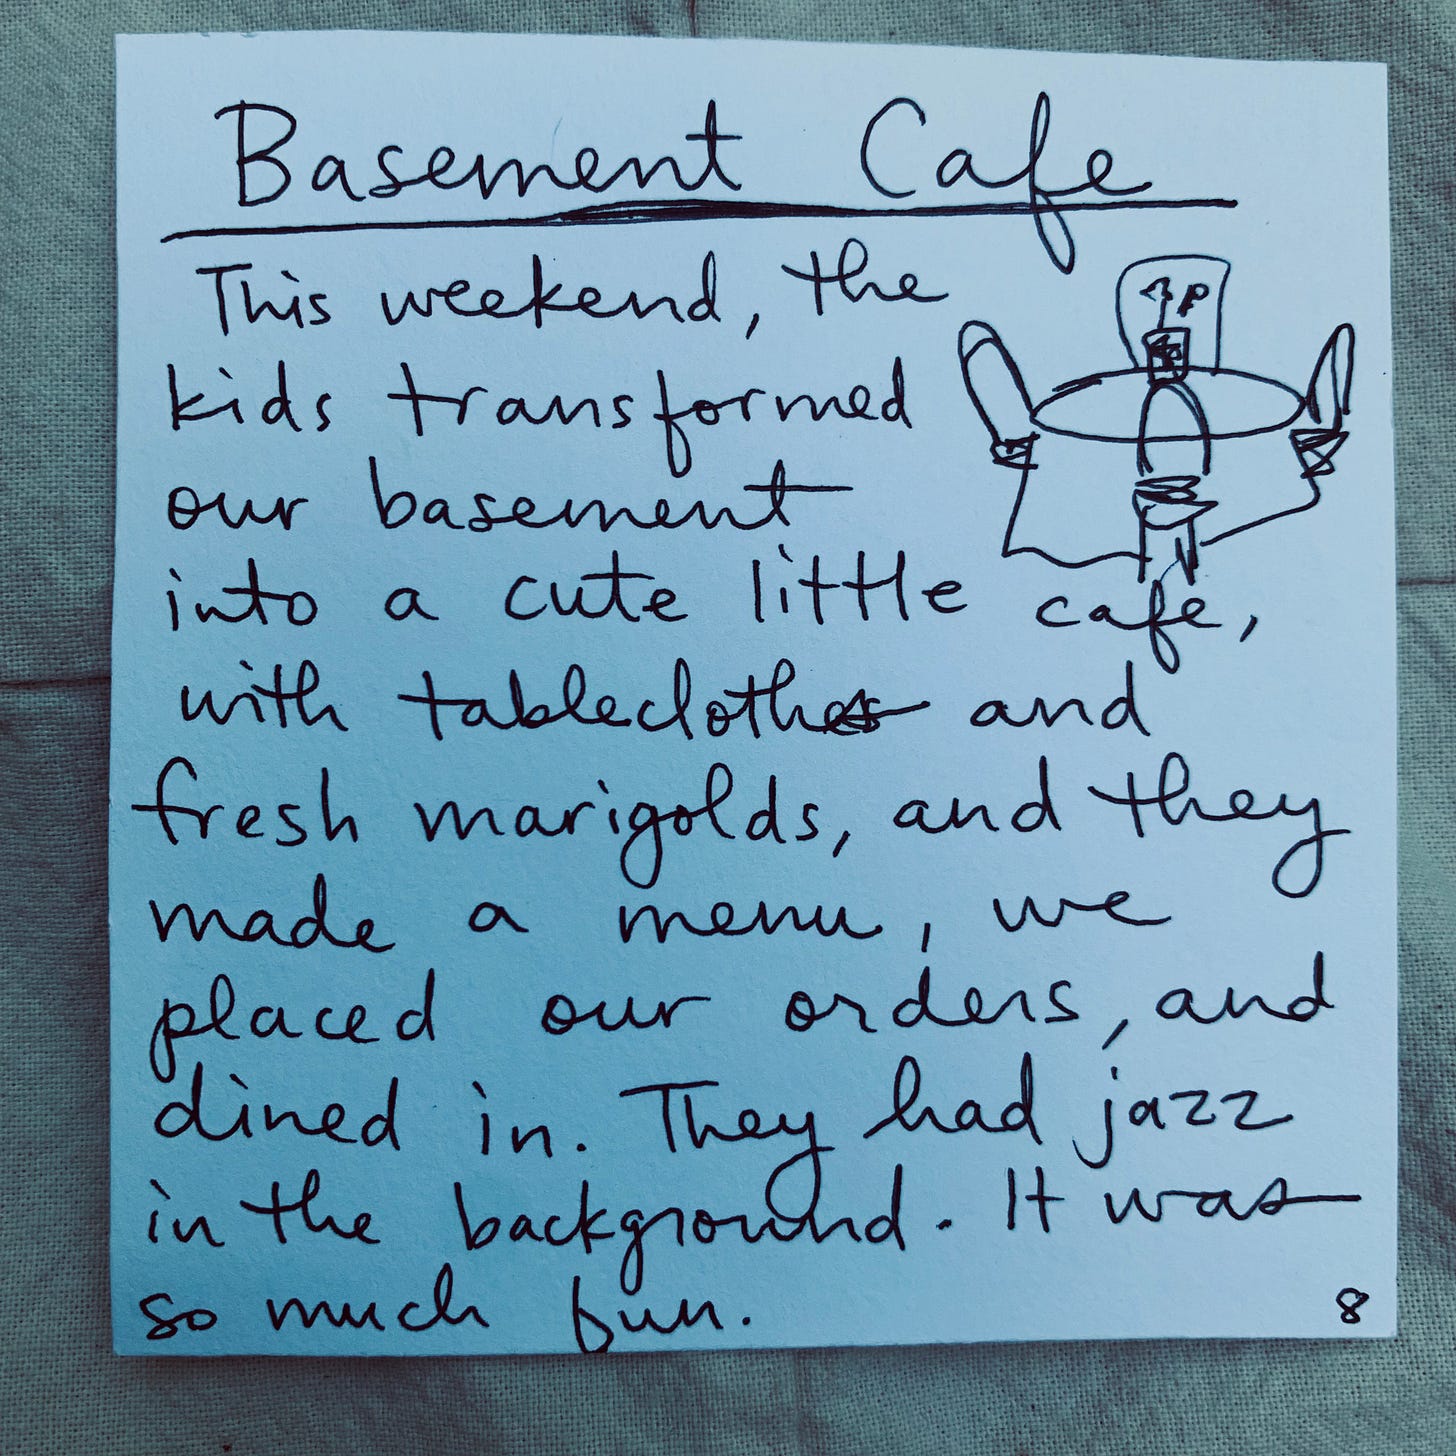 Basement Cafe
This weekend, the
kids transformed
our basement
into a cute little cafe,
with tableclothes and
fresh marigolds, and they
made a menu, we
placed our orders, and
dined in. They had jazz
in the background. It was
so much fun.
8